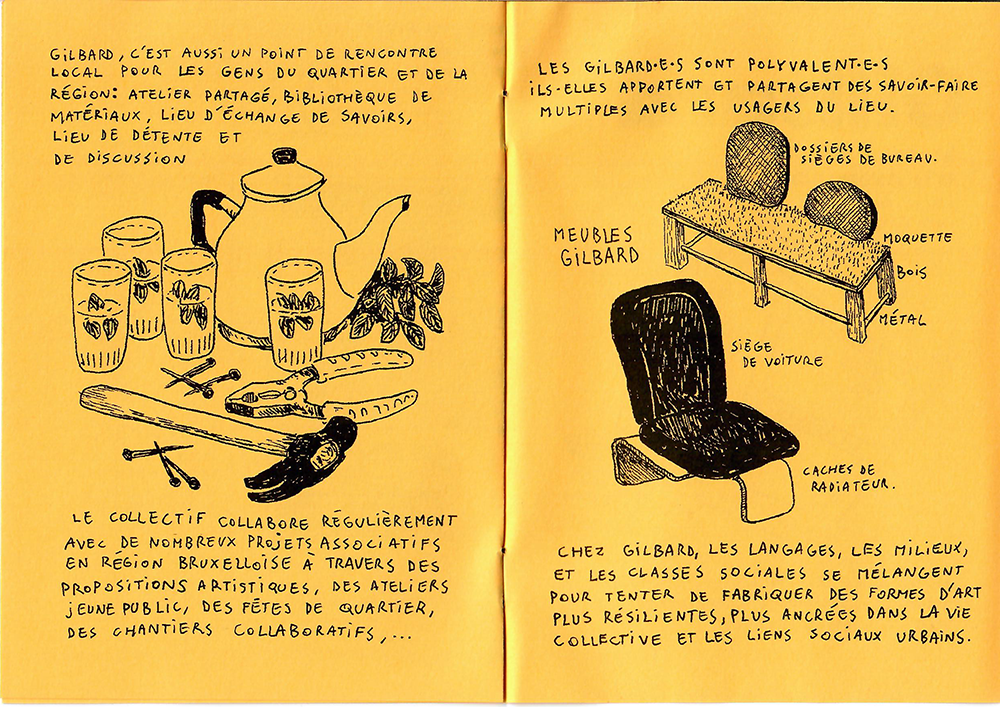 GILBARD, C'EST AUSSI UN POINT DE RENCONTRE
LOCAL POUR LES GENS DU QUARTIER ET DE LA
RÉGION: ATELIER PARTAGÉ, BIBLIOTHÈQUE DE
MATÉRIAUX, LIEU D'ÉCHANGE DE SAVOIRS,
LIEU DE DÉTENTE ET
DE DISCUSSION
LE COLLECTIF COLLABORE RÉGULIÈREMENT
AVEC DE NOMBREUX PROJETS ASSOCIATIFS
EN RÉGION BRUXELLOISE À TRAVERS DES
PROPOSITIONS ARTISTIQUES, DES ATELIERS
JEUNE PUBLIC, DES FÊTES DE QUARTIER,
DES CHANTIERS COLLABORATIFS,...
LES GILBARD·E·S SONT POLYVALENT·E·S
ILS·ELLES APPORTENT ET PARTAGENT DES SAVOIR-FAIRE
MULTIPLES AVEC LES USAGERS DU LIEU.
DOSSIERS DE
SIÈGES DE BUREAU.
MEUBLES
GILBARD
MOQUETTE
BOIS
MÉTAL
SIÈGE
DE VOITURE
CACHES DE
RADIATEUR.
CHEZ GILBARD, LES LANGAGES, LES MILIEUX,
ET LES CLASSES SOCIALES SE MÉLANGENT
POUR TENTER DE FABRIQUER DES FORMES D'ART
PLUS RÉSILIENTES, PLUS ANCRÉES DANS LA VIE
COLLECTIVE ET LES LIENS SOCIAUX URBAINS.